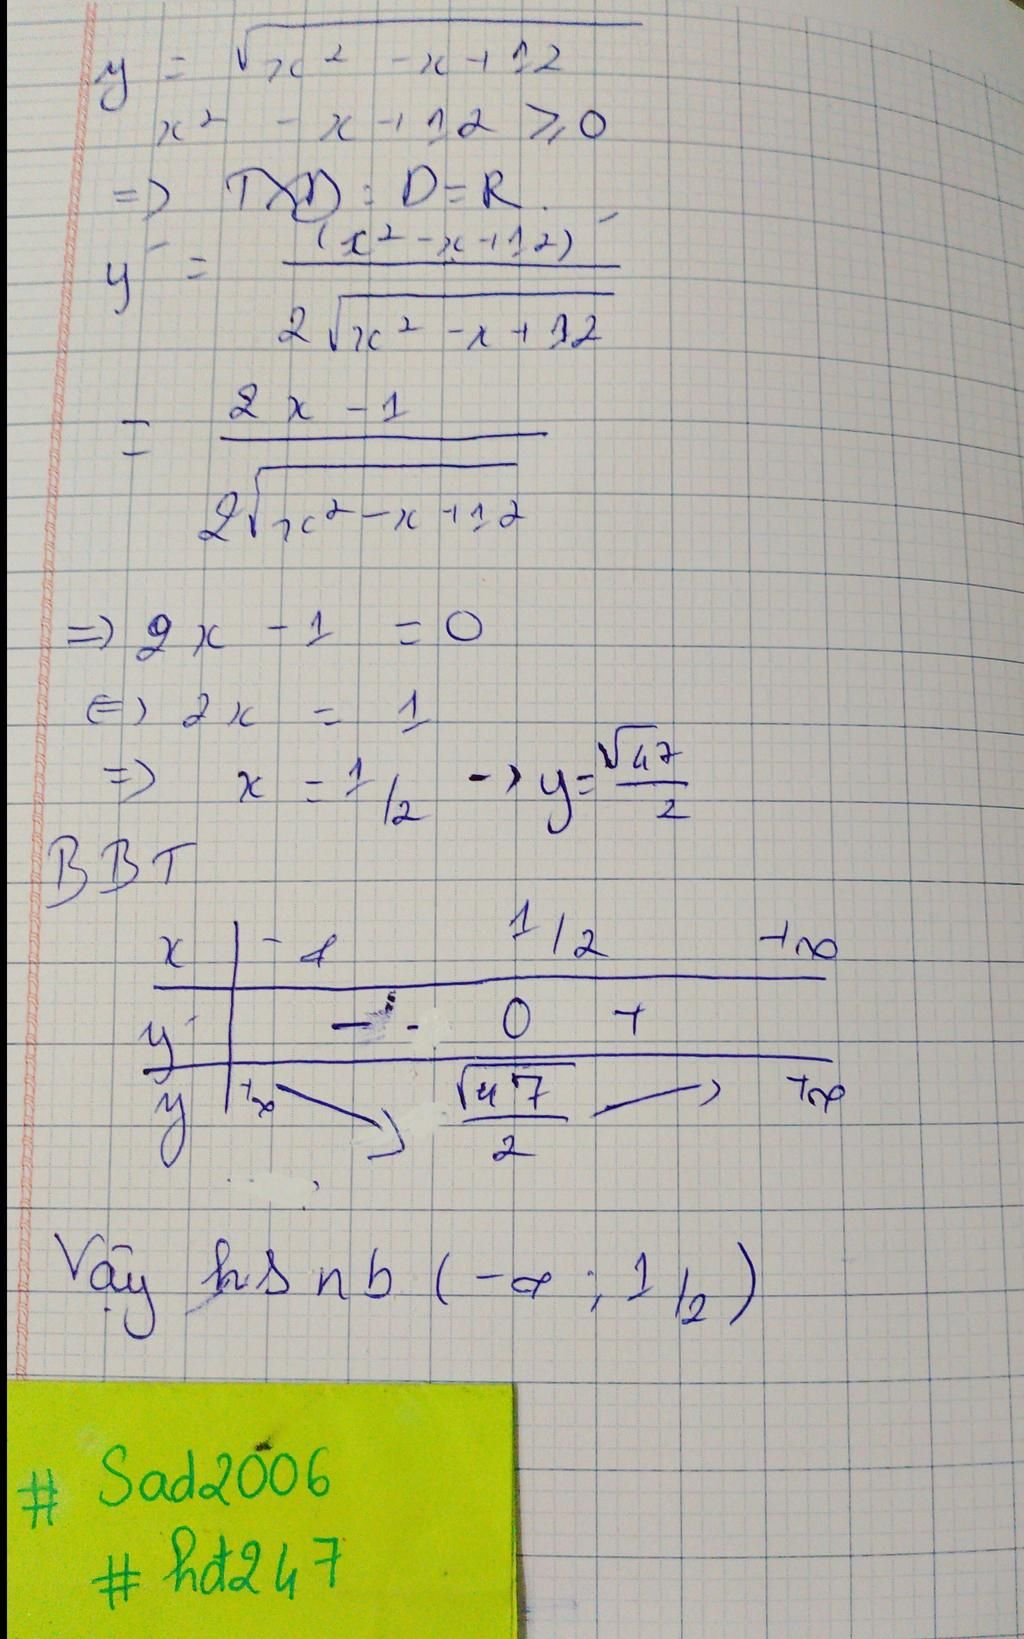 y = √(x² - x + 12)
x² - x + 12 ≥ 0
=> TXĐ : D = R.
y' = (x² - x + 12)' / 2√(x² - x + 12)
= 2x - 1 / 2√(x² - x + 12)
=> 2x - 1 = 0
<=> 2x = 1
=> x = 1/2 -> y = √47/2
BBT
x | -∞ 1/2 +∞
y' | - 0 +
y | +∞ ↘ √47/2 ↗ +∞
Vậy hs nb (-∞ ; 1/2)
# Sad2006
# hđ247